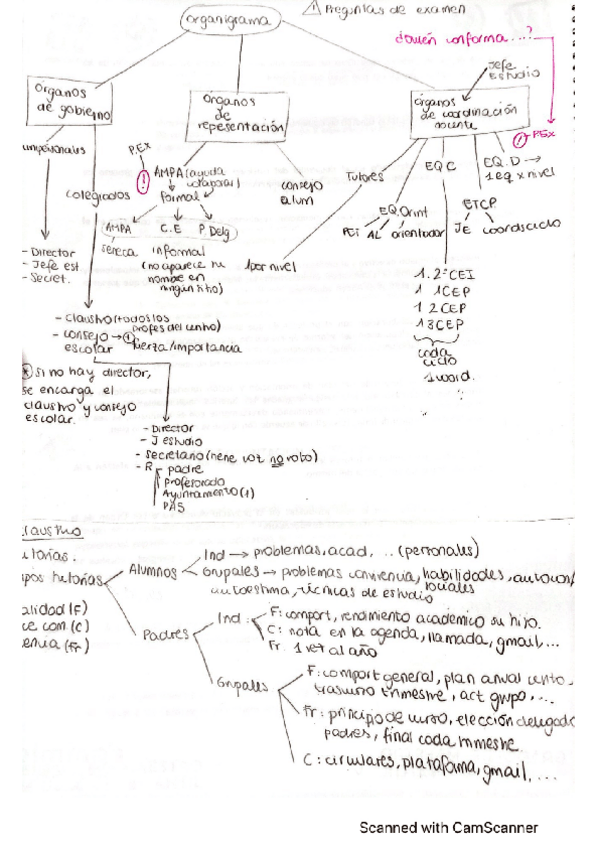 Organigrama
⚠ Preguntas de examen
¿Quién conforma....?
Jefe
estudio
Órganos
de gobierno
Órganos
de
representación
Órganos
de coordinación
docente
P.Ex
unipersonales
P.EX
colegiados
AMPA (ayuda
formal
consejo
alum
Tutores
EQ C
EQ. D →
1 eq x nivel
AMPA C.E P Delg
EQ. Orint
PEI AL orientador
ETCP
JE coordsciclo
- Director
- Jefe est.
- Secret.
seneca
informal
(no aparece su
nombre en
ningún sitio)
1 por nivel
1. 2º CEI
1 1CEP
1 2CEP
1 3CEP
cada
ciclo
1 coord.
- claustro (todos los
profes del centro)
- consejo → ①
escolar fuerza/importancia
Si no hay director,
se encarga el
claustro y consejo
escolar.
- Director
- J estudio
- Secretario (tiene voz no voto)
- R - padre
profesorado
Ayuntamiento (1)
PAS
claustro
utorías.
ipos tutorías
Alumnos
Ind → problemas, acad, ... (personales)
Grupales → problemas convivencia, habilidades sociales,
autoestima, técnicas de estudio
alidad (F)
ce com. (C)
encia (Fr)
Padres
Ind.
F: comport, rendimiento académico su hijo.
C: nota en la agenda, llamada, gmail, ...
Fr. 1 vez al año
Grupales
F: comport general, plan anual cento.
trimestre, act grupo, ...
Fr: principio de curso, elección delegado
padres, final cada trimestre.
C: circulares, plataforma, gmail, ...
Scanned with CamScanner